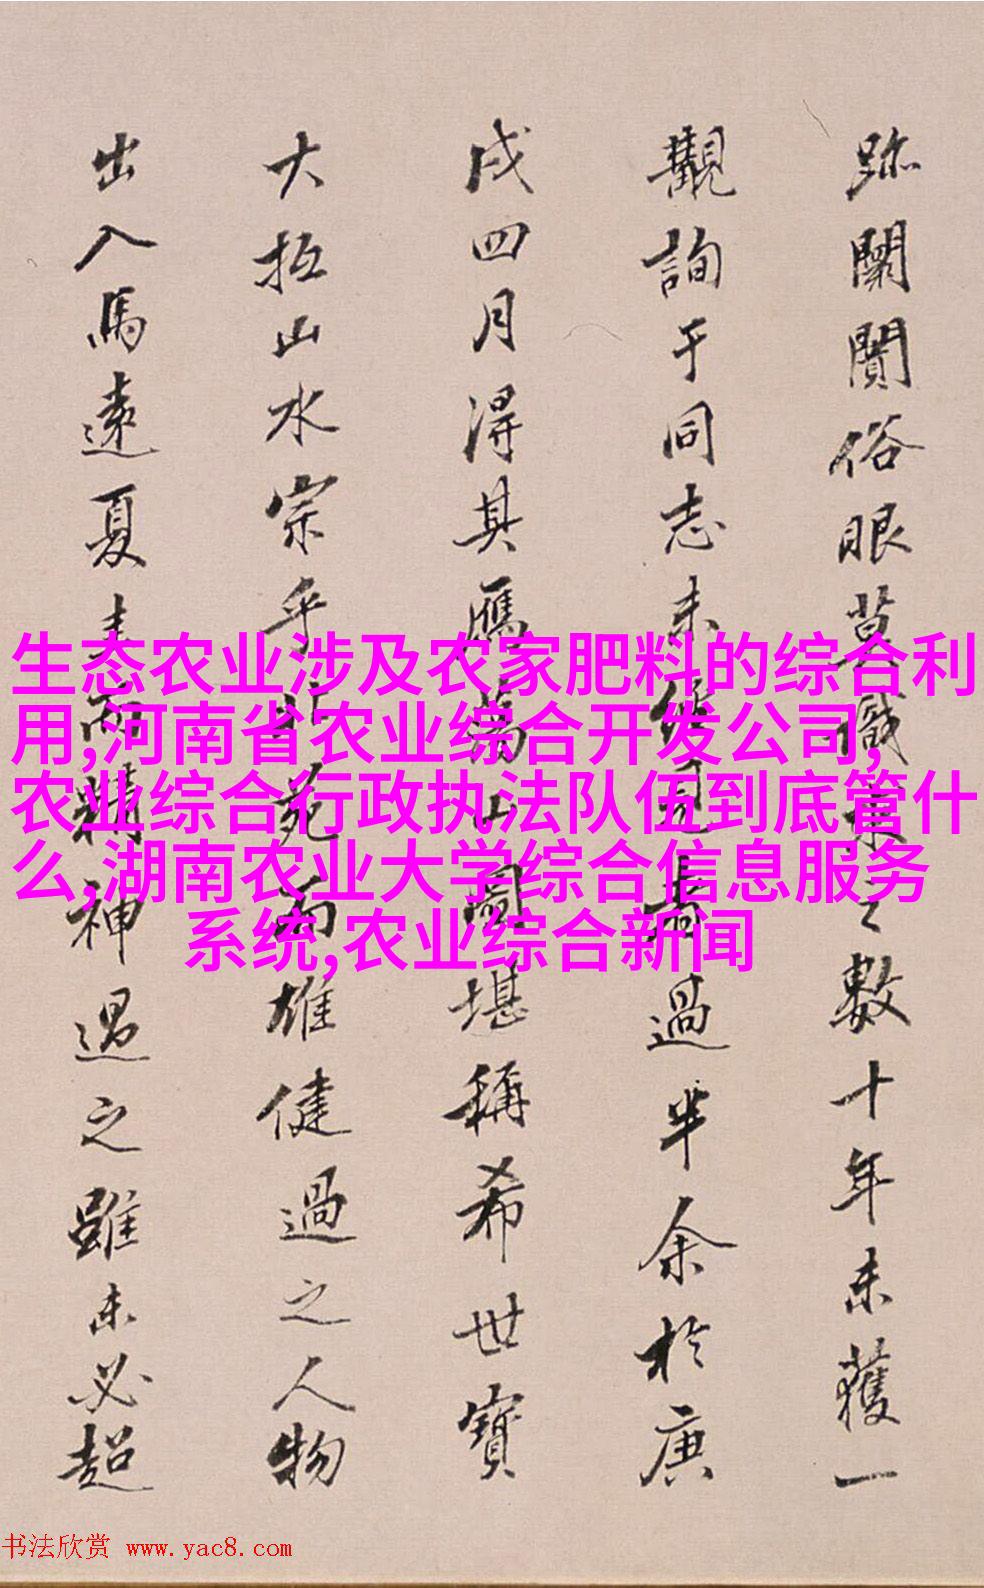 跡闤闠俗眼莫識之數十年未獲一
觀詢于同志未見者過半余於庚
戌四月得其鴈蕩山圖堪稱希世寶
大抵山水宗乎北苑而雄健過之人物
出入馬遠夏圭而精神過之雖未必超
生态农业涉及农家肥料的综合利
用,河南省农业综合开发公司,
农业综合行政执法队伍到底管什
么,湖南农业大学综合信息服务
系统,农业综合新闻
书法欣赏 www.yac8.com